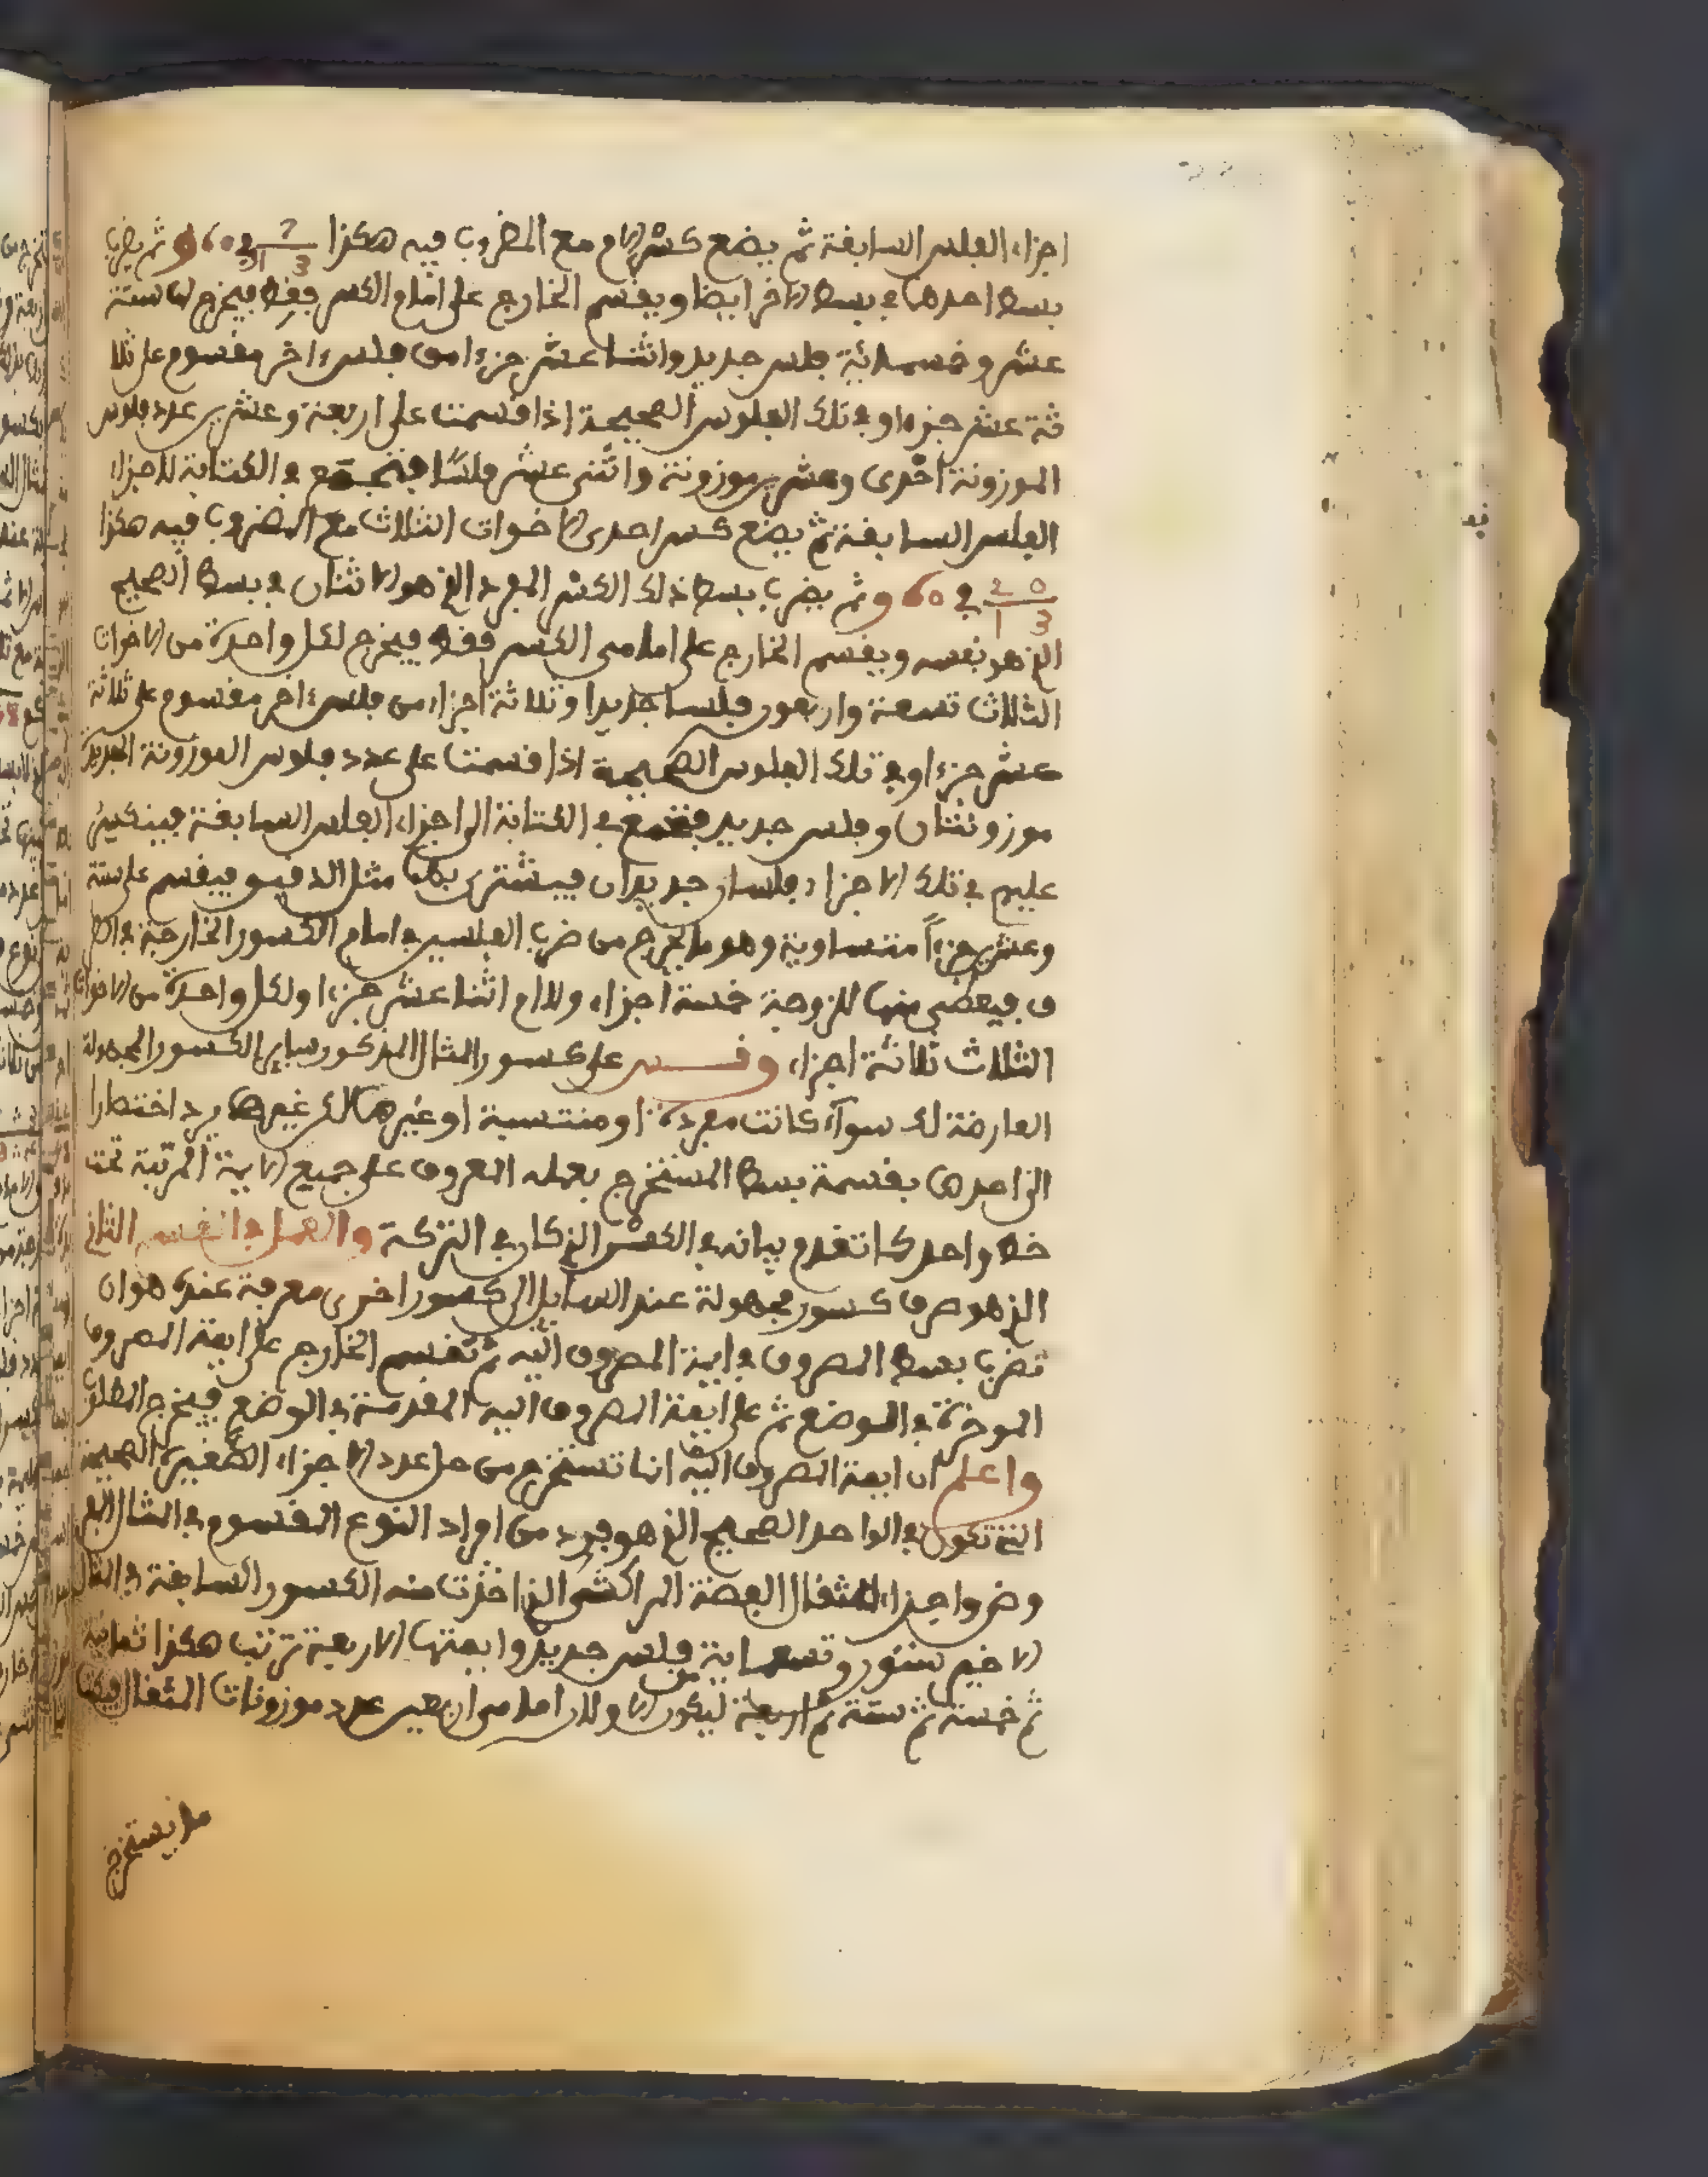 اجزاء الفلس السابقة ثم يضع كسر الام مع المضروب فيه هكذا ثم يضرب
بسط احدهما في بسط الاخر ايضا ويقسم الخارج على امام الكسر فقط فيخرج لها ستة
عشر وخمسمائة فلس جديد واثنا عشر جزءا من فلس ءاخر مقسوم على ثلا
ثة عشر جزءا وفي تلك الفلوس الصحيحة اذا قسمت على اربعة وعشرين عدد فلوس
الموزونة احدى وعشرين موزونة واثنى عشر فلسا فتجمع في الكتابة للاجزاء
الفلس السابقة ثم يضع كسر احدى الاخوات الثلاث مع المضروب فيه هكذا
في ثم يضرب بسط ذلك الكسر المفرد الذي هو الاثنان في بسط الصحيح
الذي هو نفسه ويقسم الخارج على امام الكسر فقط فيخرج لكل واحدة من الاخوات
الثلاث تسعة واربعون فلسا جديدا وثلاثة اجزاء من فلس ءاخر مقسوم على ثلاثة
عشر جزءا وفي تلك الفلوس الصحيحة اذا قسمت على عدد فلوس الموزونة الجديدة
موزونتان وفلس جديد فتجمع في الكتابة الى اجزاء الفلس السابقة فينكسر
عليهم في تلك الاجزاء فلسان جديدان فيشترى بهما مثل الدقيق فيقسم على ستة
وعشرين جزءاً متساوية وهو ما يخرج من ضرب الفلسين في امام الكسور الخارجة في
ف فيعطى منها للزوجة خمسة اجزاء وللام اثنا عشر جزءا ولكل واحدة من الاخوات
الثلاث ثلاثة اجزاء وقس على كسور المثال المذكور ساير الكسور المجهولة
العارضة لك سواء كانت مفردة او منتسبة او غيرهما لكن غيرهما يرد اختصارا
الى احدهما بقسمة بسط المستخرج بعمله المعروف على جميع الايمة المرتبة تحت
خط واحد كما تقدم بيانه في الكسر الذي كان في التركة والعمل في القسم الثاني
الذي هو صرف كسور مجهولة عند السايل الى كسور اخرى معرفة عنده هو ان
تضرب بسط المصروف في ايمة المصروف اليه ثم تقسم الخارج على ايمة المصروف
الموخرة في الوضع ثم على ايمة المصروف اليه المقدمة في الوضع فيخرج المطلوب
واعلم ان ايمة المصروف اليه انما تستخرج من حل عدد الاجزاء الصغيرة الصحيحة
التي تكون في الواحد الصحيح الذي هو فرد من افراد النوع المقسوم في المثال
وضروا جزاء المثقال الفضة المراكشي الذي اخذت منه الكسور السابقة في المثال
الاخير ستون وتسعمائة فلس جديد وايمتها الاربعة ترتب هكذا ثمانية
ثم خمسة ثم ستة ثم اربعة ليكون الاولان امامين من اربعين عدد موزونات المثقال
ما يستخرج